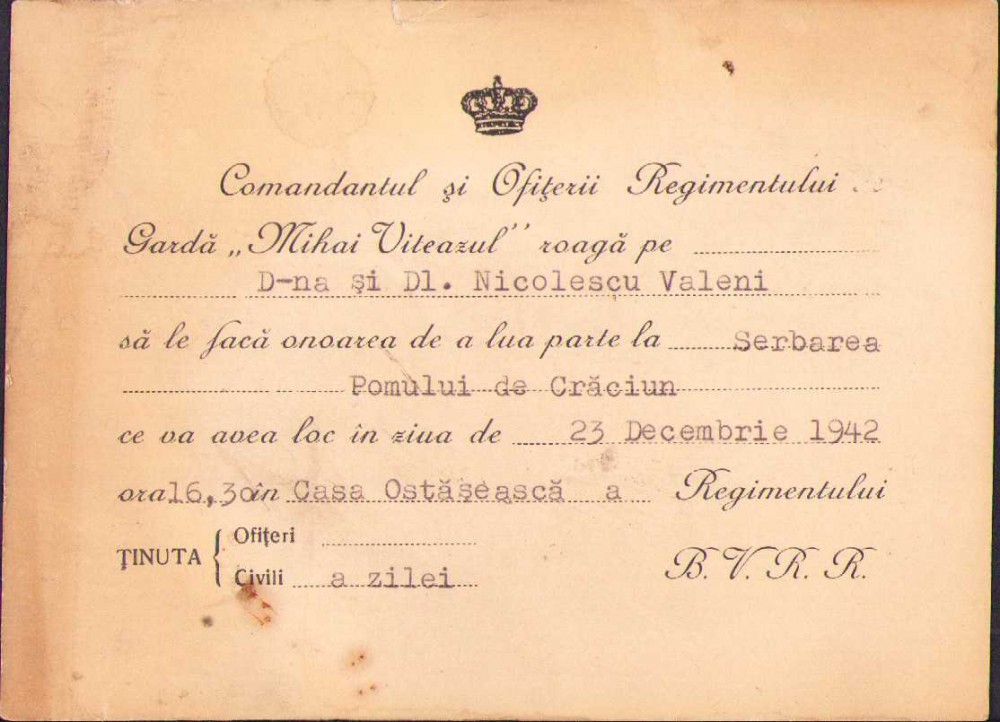 Comandantul și Ofițerii Regimentului
Gardă „Mihai Viteazul” roagă pe
D-na și Dl. Nicolescu Valeni
să le facă onoarea de a lua parte la Serbarea
Pomului de Crăciun
ce va avea loc în ziua de 23 Decembrie 1942
ora 16,30 în Casa Ostășească a Regimentului
ȚINUTA { Ofițeri
Civili a zilei
B. V. R. R.